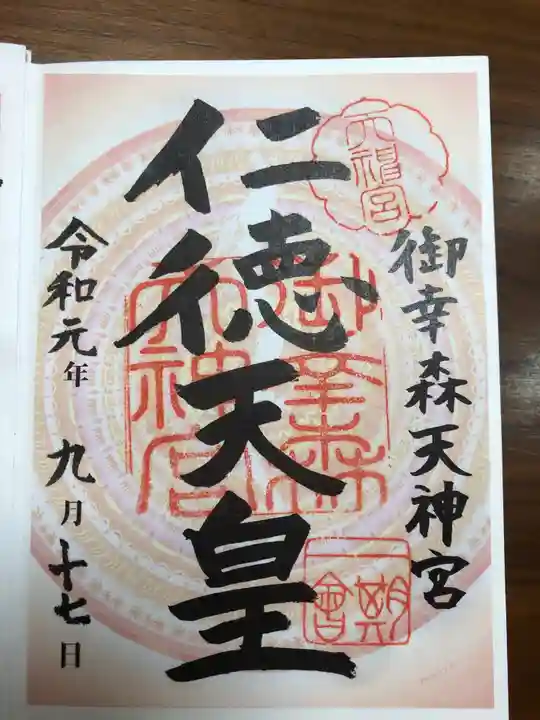 天神宮
御幸森天神宮
仁徳天皇
御幸森
天神宮
一期
一會
令和元年 九月十七日